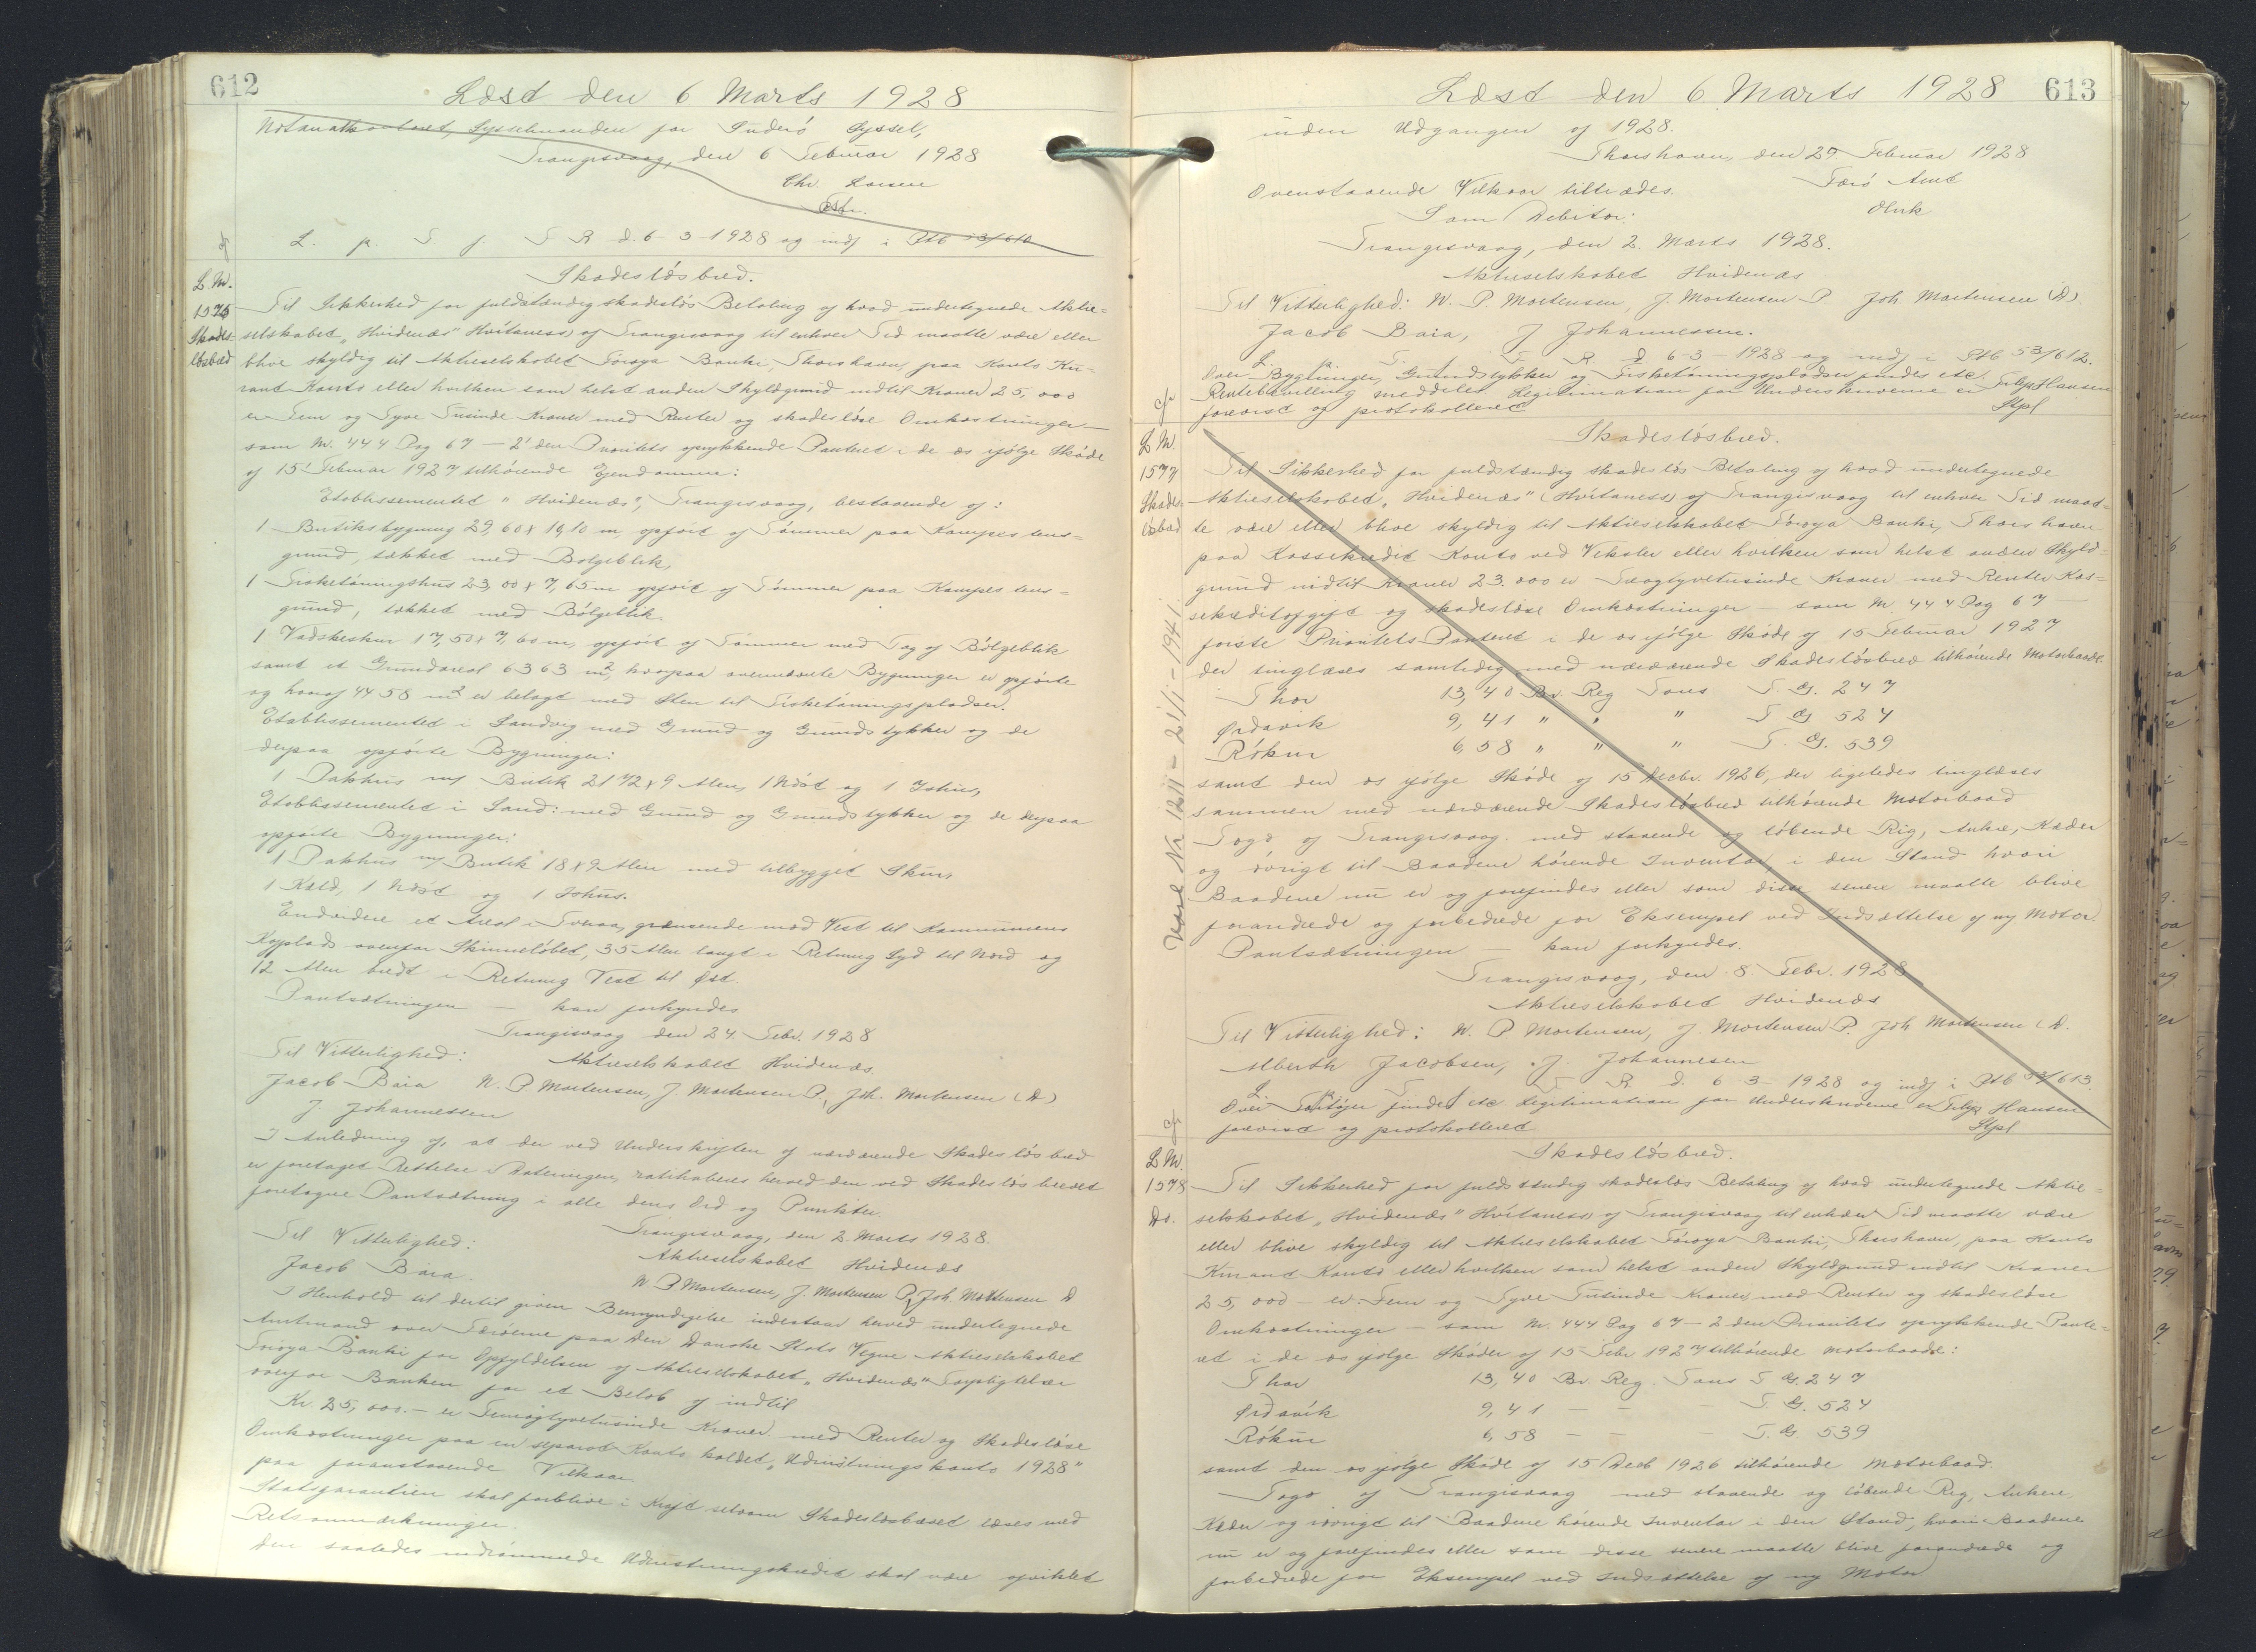 612
Læst den 6 Marts 1928
Notarialkontoret, Sysselmanden for Suderø Syssel,
Trangisvaag, den 6 Februar 1928
Chr.
cfr L. p. S f. S R d. 6-3-1928 og indf i Ptb 53/610
Skadesløsbrev.
L. Nr.
1576
Skades-
løsbrev
Til Sikkerhed for fuldstændig skadesløs Betaling af hvad undertegnede Aktie=
selskabet „Hvidenæs" Hvitaness) af Trangisvaag til enhver Tid maatte være eller
blive skyldig til Aktieselskabet Føroya Banki, Thorshavn, paa Konto Ku-
rant Konto eller hvilken som helst anden Skyldgrund indtil Kroner 25,000
er Fem og Tyve Tusinde Kroner med Renter og skadesløse Omkostninger –
som M. 444 Pag 67 – 2' den Prioritets oprykkende Panteret i de os ifølge Skøde
af 15' Februar 1927 tilhørende Ejendomme:
Etablissementet "Hvidenæs", Trangisvaag, bestaaende af:
1 Butiksbygning 29,60 x 10,10 m, opført af Tømmer paa Kampestens=
grund, tækket med Bølgeblik,
1 Fisketørringshus 23,00 x 7,65 m opført af Tømmer paa Kampestens=
grund, tækket med Bølgeblik.
1 Vadskeskur 17,50 x 7,60 m, opført af Tømmer med Tag af Bølgeblik
samt et Grundareal 6363 m², hvorpaa ovennævnte Bygninger er opførte
og hvoraf 4458 m² er belagt med Sten til Fisketørringspladser.
Etablissementet i Sandvig med Grund og Grundstykker og de
derpaa opførte Bygninger:
1 Pakhus m/ Butik 21 1/2 x 9 Alen, 1 Nøst og 1 Ishus,
Etablissementet i Sand: med Grund og Grundstykker og de derpaa
opførte Bygninger:
1 Pakhus m/ Butik 18 x 9 Alen med tilbygget Skur,
1 Kæld, 1 Nøst og 1 Ishus.
Endvidere et Areal i Tveraa, grænsende mod Vest til Kommunens
Kajplads ovenfor Skinneløbet, 35 Alen langt i Retning Syd til Nord og
12 Alen bredt i Retning Vest til Øst.
Pantsætningen – kan forkyndes
Trangisvaag den 24. Febr. 1928
Til Vitterlighed: Aktieselskabet Hvidenæs.
Jacob Baia N. P Mortensen, J. Mortensen P, Joh. Mortensen (D)
J Johannessen
I Anledning af, at der ved Underskriften af nærværende Skadesløsbrev
er foretaget Rettelse i Dateringen, ratihaberes herved den ved Skadesløsbrevet
foretagne Pantsætning i alle dens Ord og Punkter.
Trangisvaag, den 2. Marts 1928.
Til Vitterlighed: Aktieselskabet Hvidenæs
Jacob Baia. N P Mortensen, J. Mortensen P, Joh. Mortensen D
I Henhold til dertil given Bemyndigelse indestaar herved undertegnede
Amtmand over Færøerne paa den Danske Stats Vegne Aktieselskabet
Føroya Banki for Opfyldelsen af Aktieselskabet „Hvidenæs" Forpligtelser
overfor Banken for et Beløb af indtil
Kr. 25,000.– er Femogtyvetusinde Kroner med Renter og Skadesløse
Omkostninger paa en separat Konto kaldet „Udrustningskonto 1928"
paa foranstaaende Vilkaar.
Statsgarantien skal forblive i Kraft selvom Skadesløsbrevet læses med
Retsanmærkninger.
Den saaledes indrømmede Udrustningskredit skal være afviklet
Læst den 6 Marts 1928
613
inden Udgangen af 1928.
Thorshavn, den 29 Februar 1928
Færø Amt
Ovenstaaende Vilkaar tiltrædes.
Som Debitor:
Trangisvaag, den 2. Marts 1928.
Aktieselskabet Hvidenæs
Til Vitterlighed: N. P Mortensen, J. Mortensen P Joh Mortensen (D)
Jacob Baia, J Johannessen.
L. p. S. f. S R d. 6-3-1928 og indf i Ptb 53/612.
Over Bygninger, Grundstykker og Fisketørringspladser findes etc.
Rentebevilling meddelt. Legitimation for Underskriverne er Filip Hansen
cfr forevist og protokolleret Stpl
Skadesløsbrev.
L Nr.
1577
Skades-
løsbrev
Til Sikkerhed for fuldstændig skadesløs Betaling af hvad undertegnede
Aktieselskabet „Hvidenæs" (Hvitaness) af Trangisvaag til enhver Tid maat=
te være eller blive skyldig til Aktieselskabet Føroya Banki, Thorshavn
paa Kassekredit Konto ved Veksler eller hvilken som helst anden Skyld=
grund indtil Kroner 23.000 er Treogtyvetusinde Kroner med Renter Kas=
sekreditafgift og skadesløse Omkostninger – som M. 444 Pag 67 –
første Prioritets Panteret i de os ifølge Skøde af 15 Februar 1927
der tinglæses samtidig med nærværende Skadesløsbrev tilhørende Motorbaade.
Thor 13,40 Br. Reg Tons T. G. 247
Ørdavik 9,41 " " " T G 524
Røkur 6,58 " " " T. G. 539
samt den os ifølge Skøde af 15' Decbr. 1926, der ligeledes tinglæses
sammen med nærværende Skadesløsbrev tilhørende Motorbaad
Togo af Trangisvaag. med staaende og løbende Rig, Ankre, Kæder
og øvrigt til Baadene hørende Inventar, i den Stand hvori
Baadene nu er og forefindes eller som disse senere maatte blive
forandrede og forbedrede for Eksempel ved Indsættelse af ny Motor.
Pantsætningen – kan forkyndes.
Trangisvaag, den 8. Febr. 1928
Aktieselskabet Hvidenæs
Til Vitterlighed: N. P Mortensen, J. Mortensen P. Joh Mortensen (D.
Alberth Jacobsen, J. Johannesen
L. p. S. f. S R. d. 6-3-1928 og indf i Ptb 53/613.
Over Fartøjer findes etc. Legitimation for Underskriverne er Filip Hansen
cfr forevist og protokolleret Stpl
Skadesløsbrev.
L Nr.
1578
Do.
Til Sikkerhed for fuldstændig skadesløs Betaling af hvad undertegnede Aktie=
selskabet „Hvidenæs" Hvitaness) af Trangisvaag til enhver Tid maatte være
eller blive skyldig til Aktieselskabet Føroya Banki, Thorshavn, paa Konto
Kurant Konto eller hvilken som helst anden Skyldgrund indtil Kroner
25,000 – er: Fem og Tyve Tusinde Kroner, med Renter og skadesløse
Omkostninger – som M. 444 Pag 67 – 2 den Prioritets oprykkende Pante=
ret i de os ifølge Skøder af 15 Febr 1927 tilhørende Motorbaade:
Thor 13,40 Br. Reg. Tons T G. 247
Ørdavik 9,41 – – T. G. 524
Røkur 6,58 – – T. G. 539
samt den os ifølge Skøde af 15 Decb 1926 tilhørende Motorbaad.
Togo af Trangisvaag med staaende og løbende Rig, Ankere,
Kæder og øvrigt til Baadene hørende Inventar i den Stand, hvori Baadene
nu er og forefindes eller som disse senere maatte blive forandrede og
forbedrede for Eksempel ved Indsættelse af ny Motor